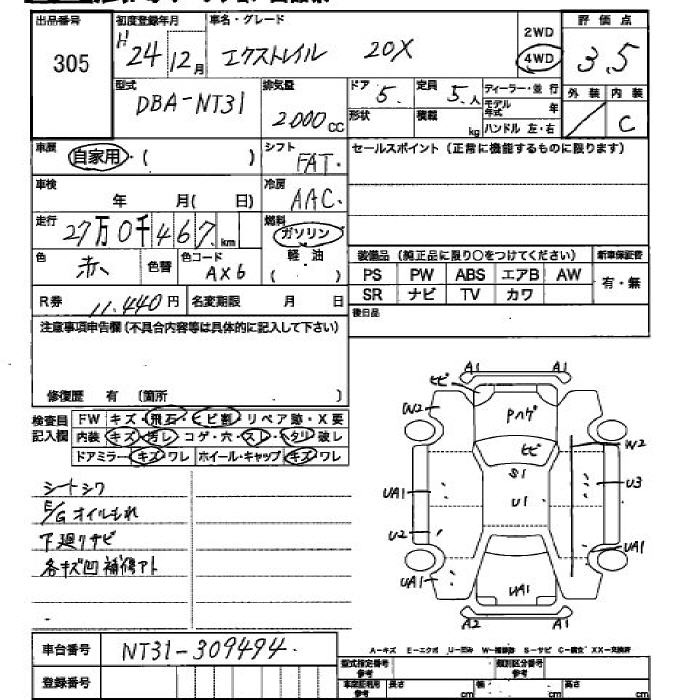 出品番号 初度登録年月 車名・グレード 2WD 評価点
305 H24 12月 エクストレイル 20X 4WD 3.5
型式 排気量 ドア 定員 ディーラー・並行 外装 内装
DBA-NT31 2000cc 5. 5.人 モデル年式 年
形状 積載 kg ハンドル 左・右 / C
車歴 自家用・( ) シフト FAT. セールスポイント(正常に機能するものに限ります)
車検 年 月( 日) 冷房 AAC.
走行 27万0千467km 燃料 ガソリン
軽油
( )
色 赤、 色替 色コード AX6 装備品(純正品に限り○をつけてください) 新車保証書
PS PW ABS エアB AW 有・無
SR ナビ TV カワ
R券 11,440円 名変期限 月 日 後日品
注意事項申告欄(不具合内容等は具体的に記入して下さい)
修復歴 有 (箇所 )
検査員記入欄 FW キズ・飛石・ヒビ割・リペア跡・X要
内装 キズ・汚レ コゲ・穴・スレ・ヘタリ 破レ
ドアミラー キズ・ワレ ホイール・キャップ キズ・ワレ
シートシワ
E/Gオイルもれ
下廻りサビ
各キズ凹 補修アト
A1 A1
ヒビ
W2 Pハゲ
ヒビ W2
S1
UA1 U1 U3
U2 UA1
UA1 UA1
A2 A1
A-キズ E-エクボ U-凹み W-補修跡 S-サビ C-腐食 XX-交換済
車台番号 NT31-309494.
登録番号
型式指定番号 参考 類別区分番号 参考
車庫証明用 参考 長さ cm 幅 cm 高さ cm